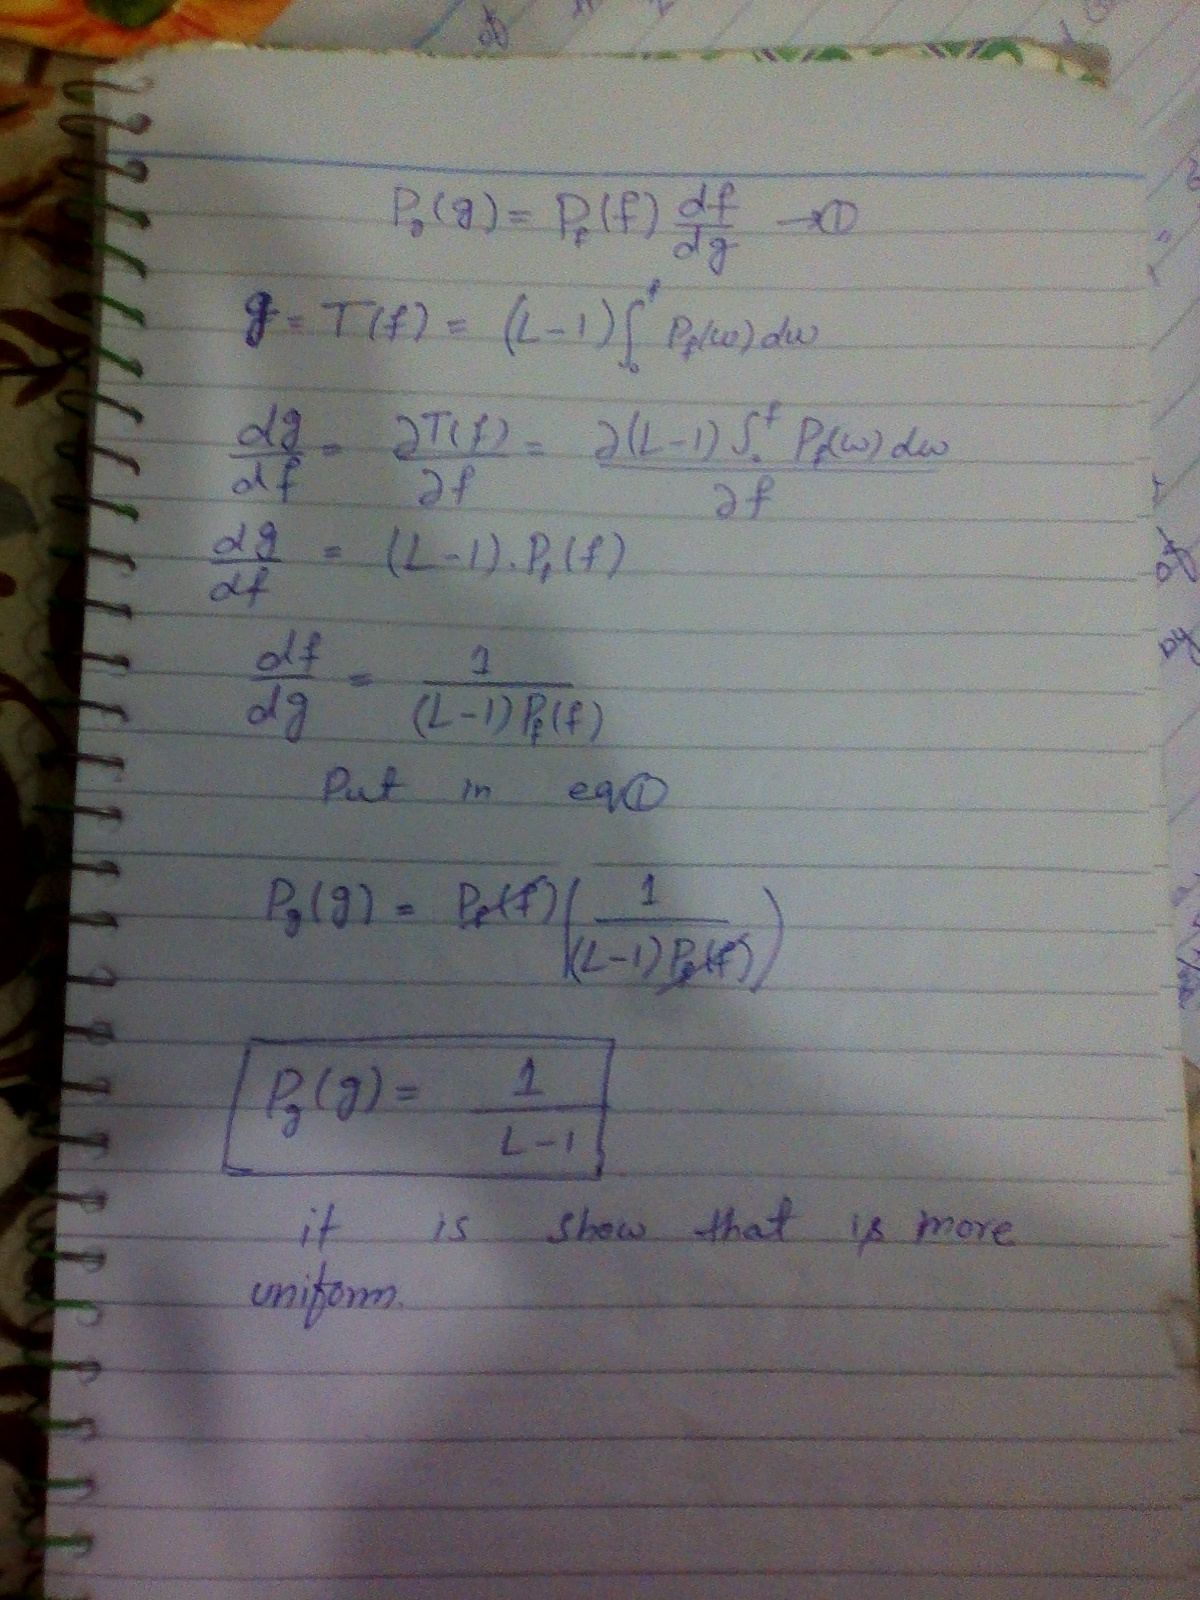 P_g(g) = P_f(f) df/dg → ①
g = T(f) = (L-1) ∫_0^f P_f(w) dw
dg/df = ∂T(f)/∂f = ∂(L-1) ∫_0^f P_f(w) dw / ∂f
dg/df = (L-1) . P_f(f)
df/dg = 1/((L-1) P_f(f))
Put in eq ①
P_g(g) = P_f(f) (1/((L-1) P_f(f)))
P_g(g) = 1/(L-1)
it is show that is more
uniform.